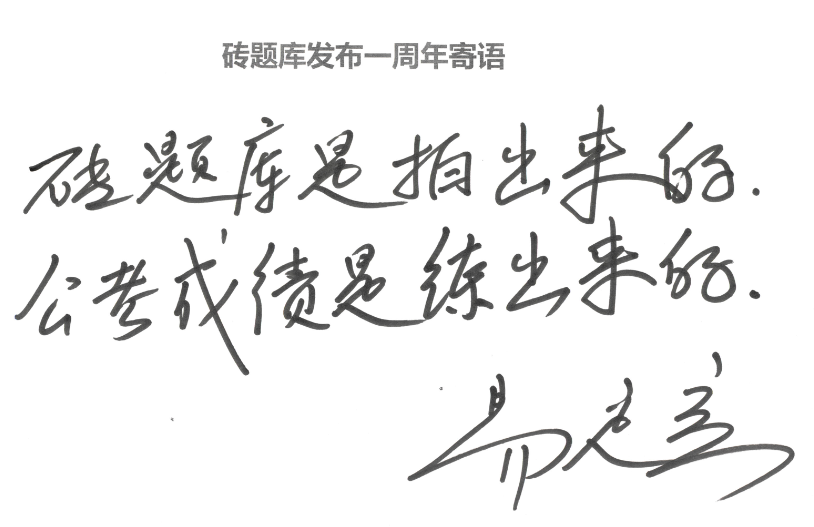 砖题库发布一周年寄语
砖题库是拍出来的.
公考成绩是练出来的.